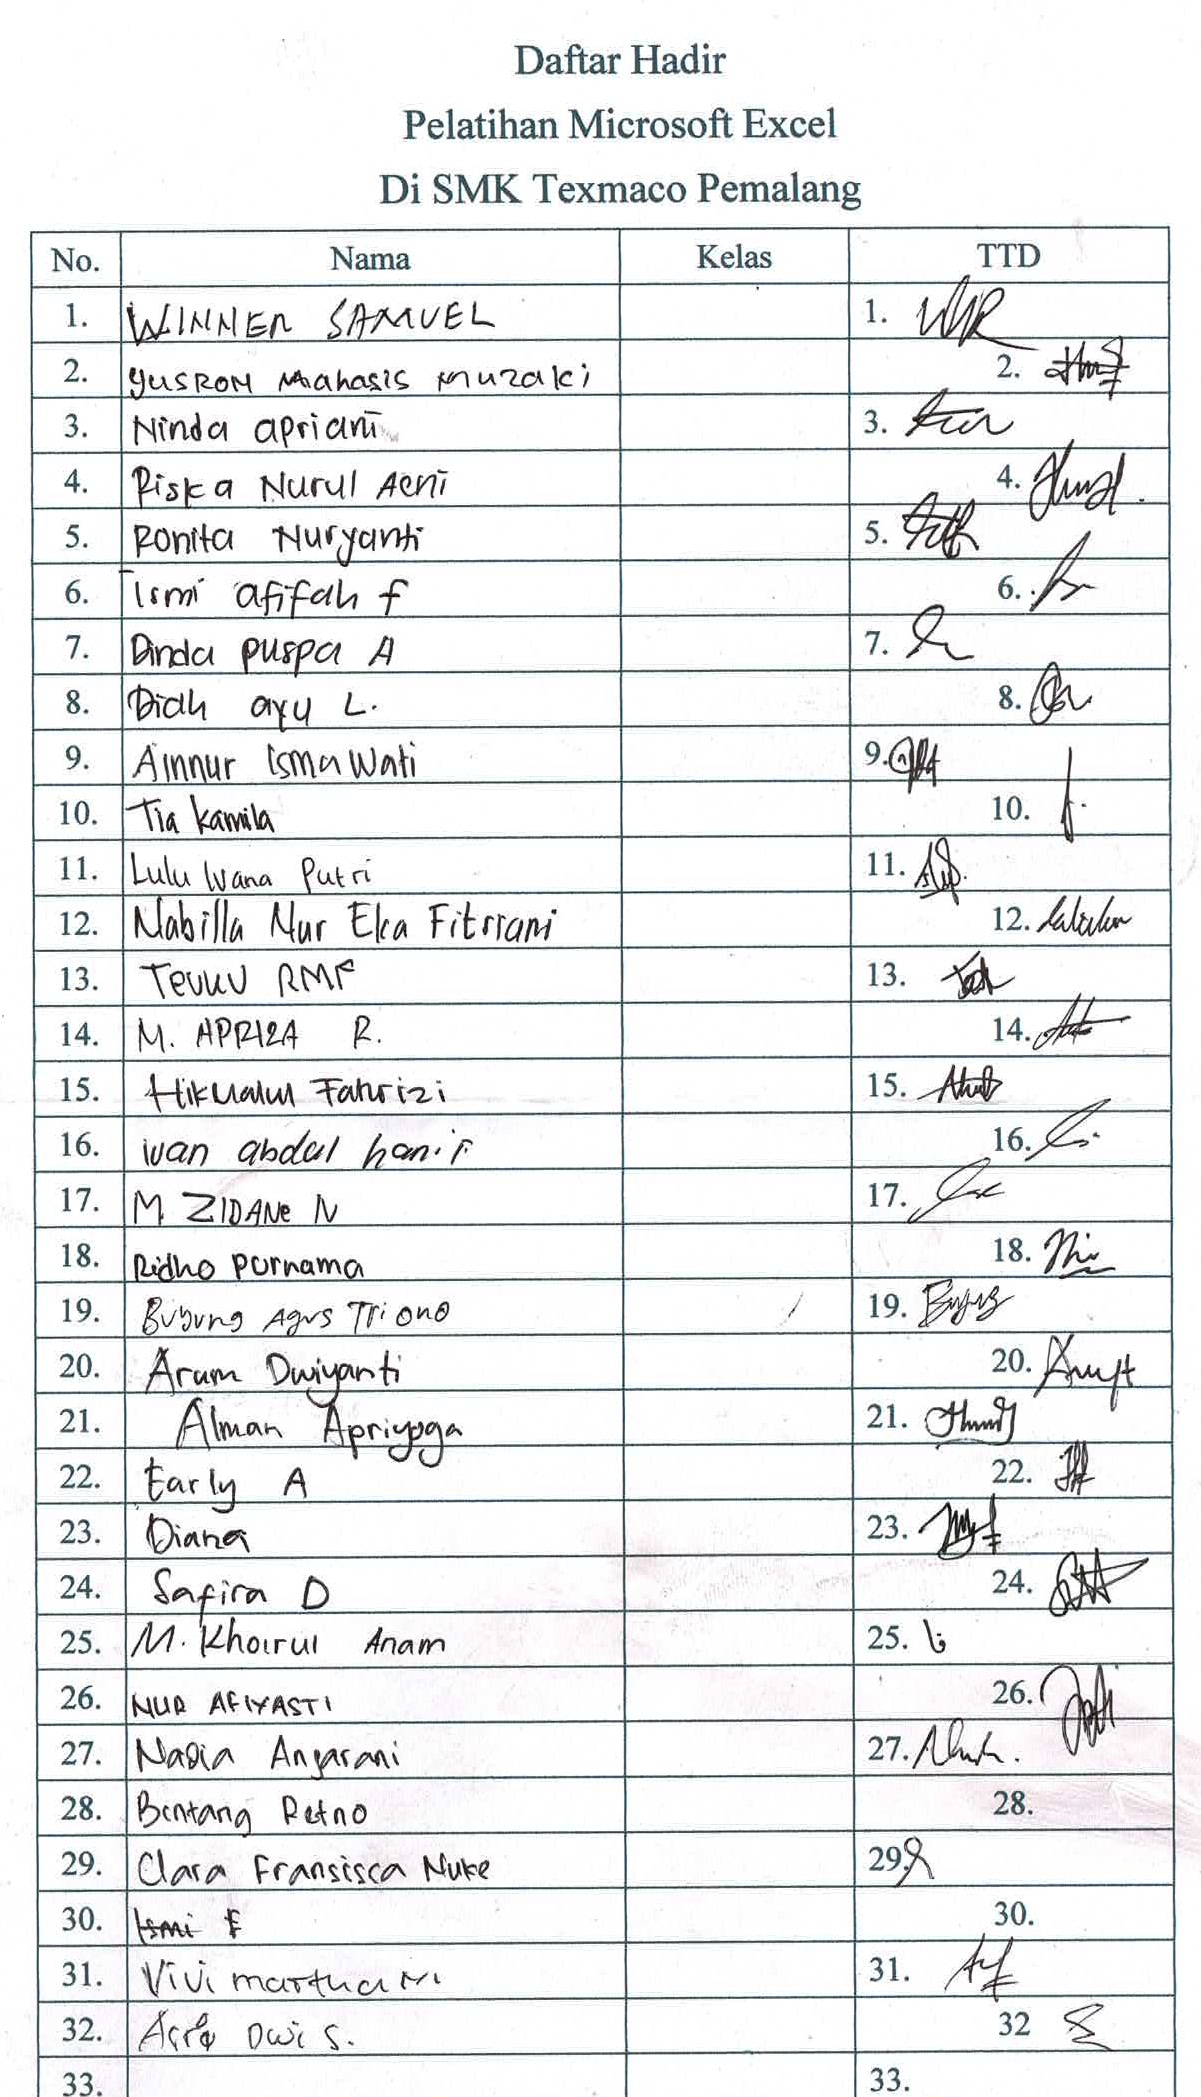 Daftar Hadir
Pelatihan Microsoft Excel
Di SMK Texmaco Pemalang
No. Nama Kelas TTD
1. WINNER SAMUEL 1.
2. YUSRON Mahasis Muzaki 2.
3. Ninda apriani 3.
4. Riska Nurul Aeni 4.
5. Ronita Nuryanti 5.
6. Ismi afifah f 6.
7. Dinda puspa A 7.
8. Diah ayu L. 8.
9. Ainnur Isma Wati 9.
10. Tia kamila 10.
11. Lulu Wana Putri 11.
12. Nabilla Nur Eka Fitriani 12.
13. TEUKU RMF 13.
14. M. APRIZA R. 14.
15. Fahrizi 15.
16. ivan abdul hanif 16.
17. M ZIDANe N 17.
18. Ridho Purnama 18.
19. Buyung Agus Triono 19.
20. Arum Dwiyanti 20.
21. Alman Apriyoga 21.
22. Early A 22.
23. Diana 23.
24. Safira D 24.
25. M. Khoirul Anam 25.
26. NUR AFIYASTI 26.
27. Nadia Angarani 27.
28. Bentang Retno 28.
29. Clara Fransisca Nuke 29.
30. Ismi F 30.
31. Vivi marthaNi 31.
32. Dwi S. 32
33. 33.